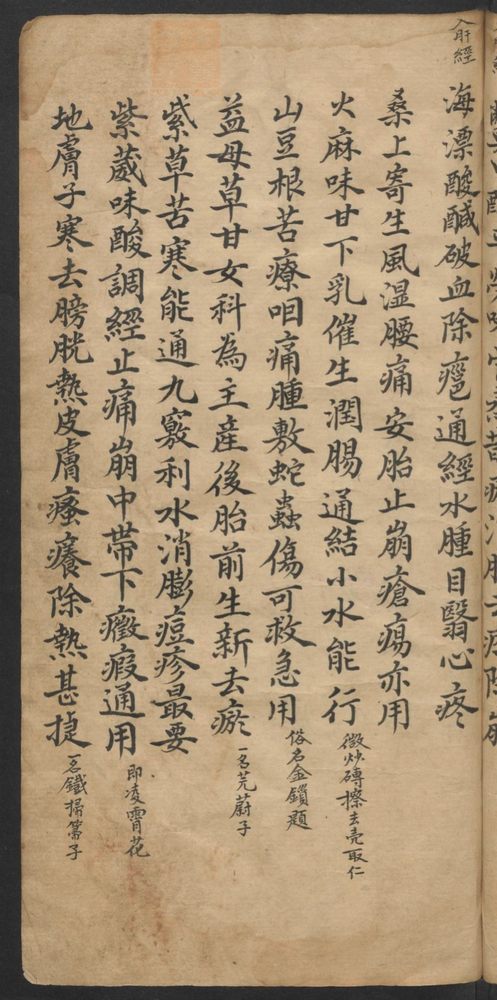 入肝經
海漂酸鹹破血除瘧通經水腫目翳心疼
桑上寄生風湿腰痛安胎止崩瘡瘍亦用
火麻味甘下乳催生潤腸通結小水能行 微炒磚擦去壳取仁
山豆根苦療咽痛腫敷蛇蟲傷可救急用 俗名金鎖匙
益母草甘女科為主産後胎前生新去瘀 一名茺蔚子
紫草苦寒能通九竅利水消膨痘疹最要
紫葳味酸調經止痛崩中帶下癥瘕通用 即凌霄花
地膚子寒去膀胱熱皮膚瘙癢除熱甚捷 一名鐵掃箒子